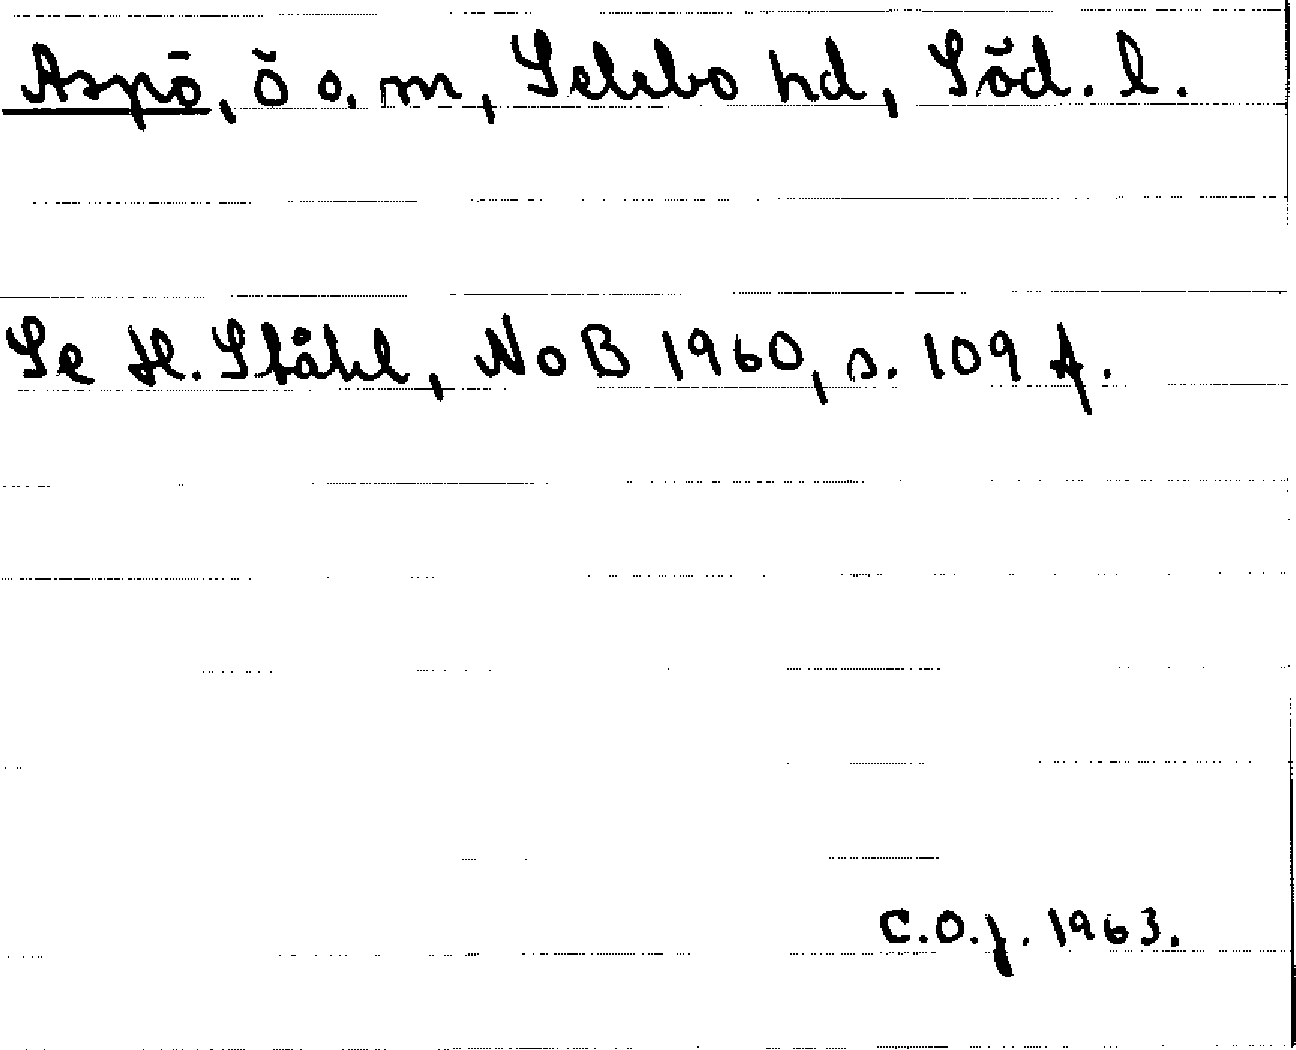 Aspö, ö o. m, Selebo hd, Söd. l.
Se H. Ståhl, NoB 1960, s. 109 f.
C.O.J. 1963.